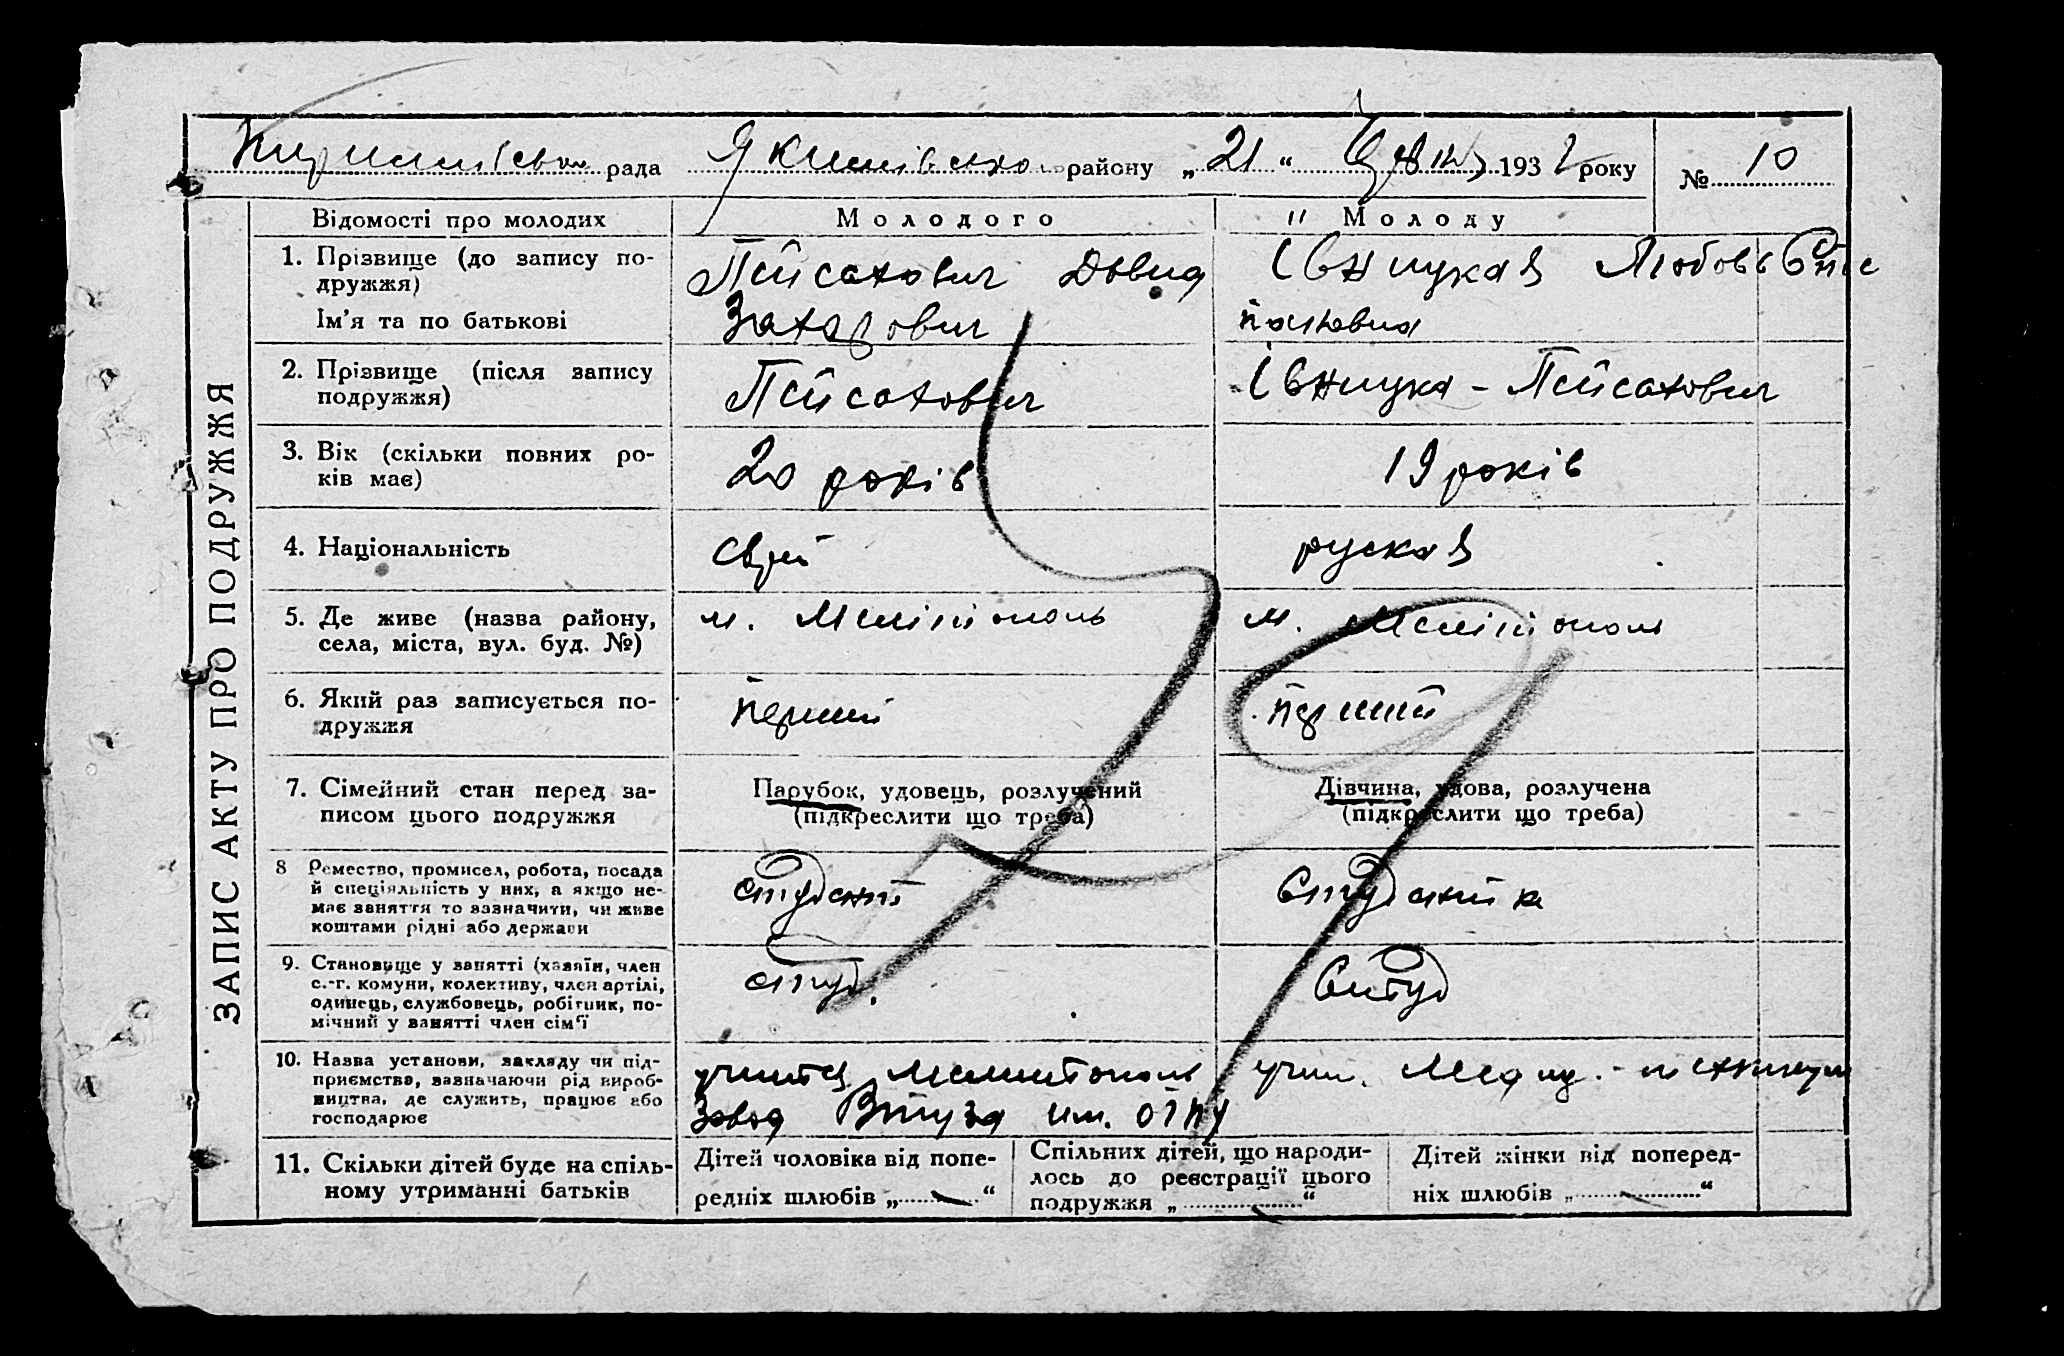 Кирилівська рада Якимівського району „ 21 “ 193 2 року № 10
ЗАПИС АКТУ ПРО ПОДРУЖЖЯ
Відомості про молодих
Молодого
Молоду
1. Прізвище (до запису по-
дружжя)
Ім’я та по батькові
Пейсахович Довид
Захарович
Івницкая Любовь
2. Прізвище (після запису
подружжя)
Пейсахович
Івницка - Пейсахович
3. Вік (скільки повних ро-
ків має)
20 років
19 років
4. Національність
єврей
руская
5. Де живе (назва району,
села, міста, вул. буд. №)
м. Мелітополь
м. Мелітополь
6. Який раз записується по-
дружжя
перший
перший
7. Сімейний стан перед за-
писом цього подружжя
Парубок, удовець, розлучений
(підкреслити що треба)
Дівчина, удова, розлучена
(підкреслити що треба)
8 Ремество, промисел, робота, посада
й спеціяльність у них, а якщо не-
має заняття то зазначити, чи живе
коштами рідні або держави
студент
студентка
9. Становище у занятті (хазяїн, член
с.-г. комуни, колективу, член артілі,
одинець, службовець, робітник, по-
мічний у занятті член сім’ї
студ.
студ
10. Назва установи, закладу чи під-
приємства, зазначаючи рід вироб-
ництва, де служить, працює або
господарює
учится Мелитополь
Завод Втуза им. ОГПУ
учит. Медиц. - техникум
11. Скільки дітей буде на спіль-
ному утриманні батьків
Дітей чоловіка від попе-
редніх шлюбів „ — “
Спільних дітей, що народи-
лось до реєстрації цього
подружжя „ — “
Дітей жінки від поперед-
ніх шлюбів „ — “